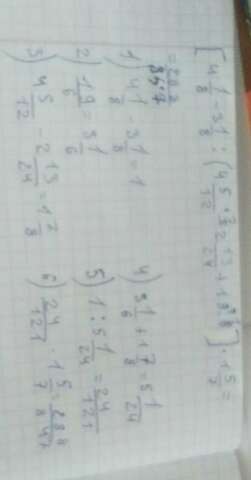 [4 1/8 - 3 1/8 : (4 5/12 + 3 2 13/24 + 1 3/8)] · 1 5/7 =
= 288/847
1) 4 1/8 - 3 1/8 = 1
2) 19/6 = 3 1/6
3) 4 5/12 - 2 13/24 = 1 7/8
4) 3 1/6 + 1 7/8 = 5 1/24
5) 1 : 5 1/24 = 24/121
6) 24/121 · 1 5/7 = 288/847